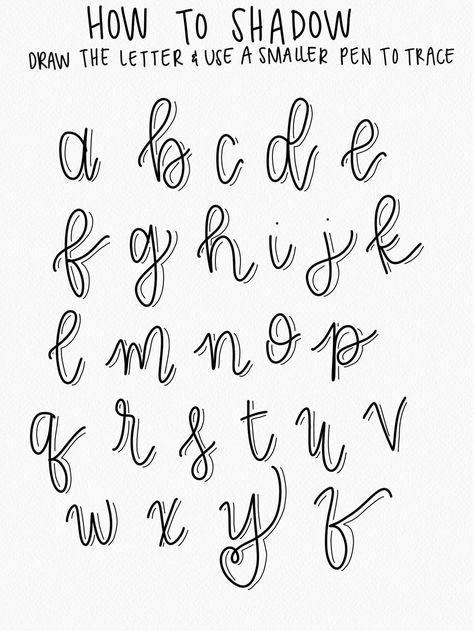 HOW TO SHADOW
DRAW THE LETTER & USE A SMALLER PEN TO TRACE
a b c d e
f g h i j k
l m n o p
q r s t u v
w x y z